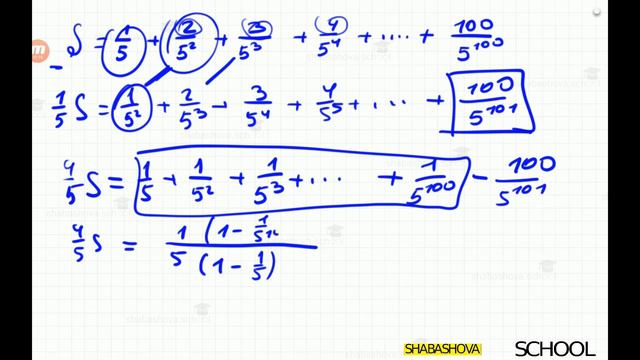 S = 1/5 + 2/5² + 3/5³ + 4/5⁴ + .... + 100/5¹⁰⁰
1/5 S = 1/5² + 2/5³ + 3/5⁴ + 4/5⁵ + ... + 100/5¹⁰¹
4/5 S = 1/5 + 1/5² + 1/5³ + ... + 1/5¹⁰⁰ - 100/5¹⁰¹
4/5 S = 1 (1 - 1/5¹⁰ / 5 (1 - 1/5)
SHABASHOVA SCHOOL